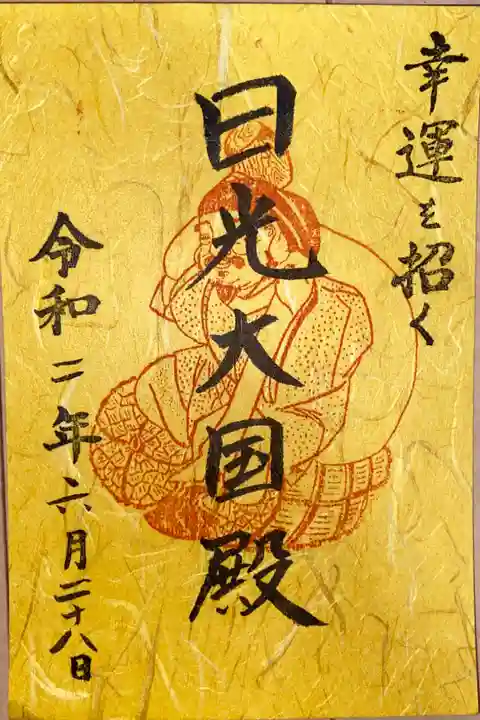 幸運を招く
日光大国殿
令和二年六月二十八日